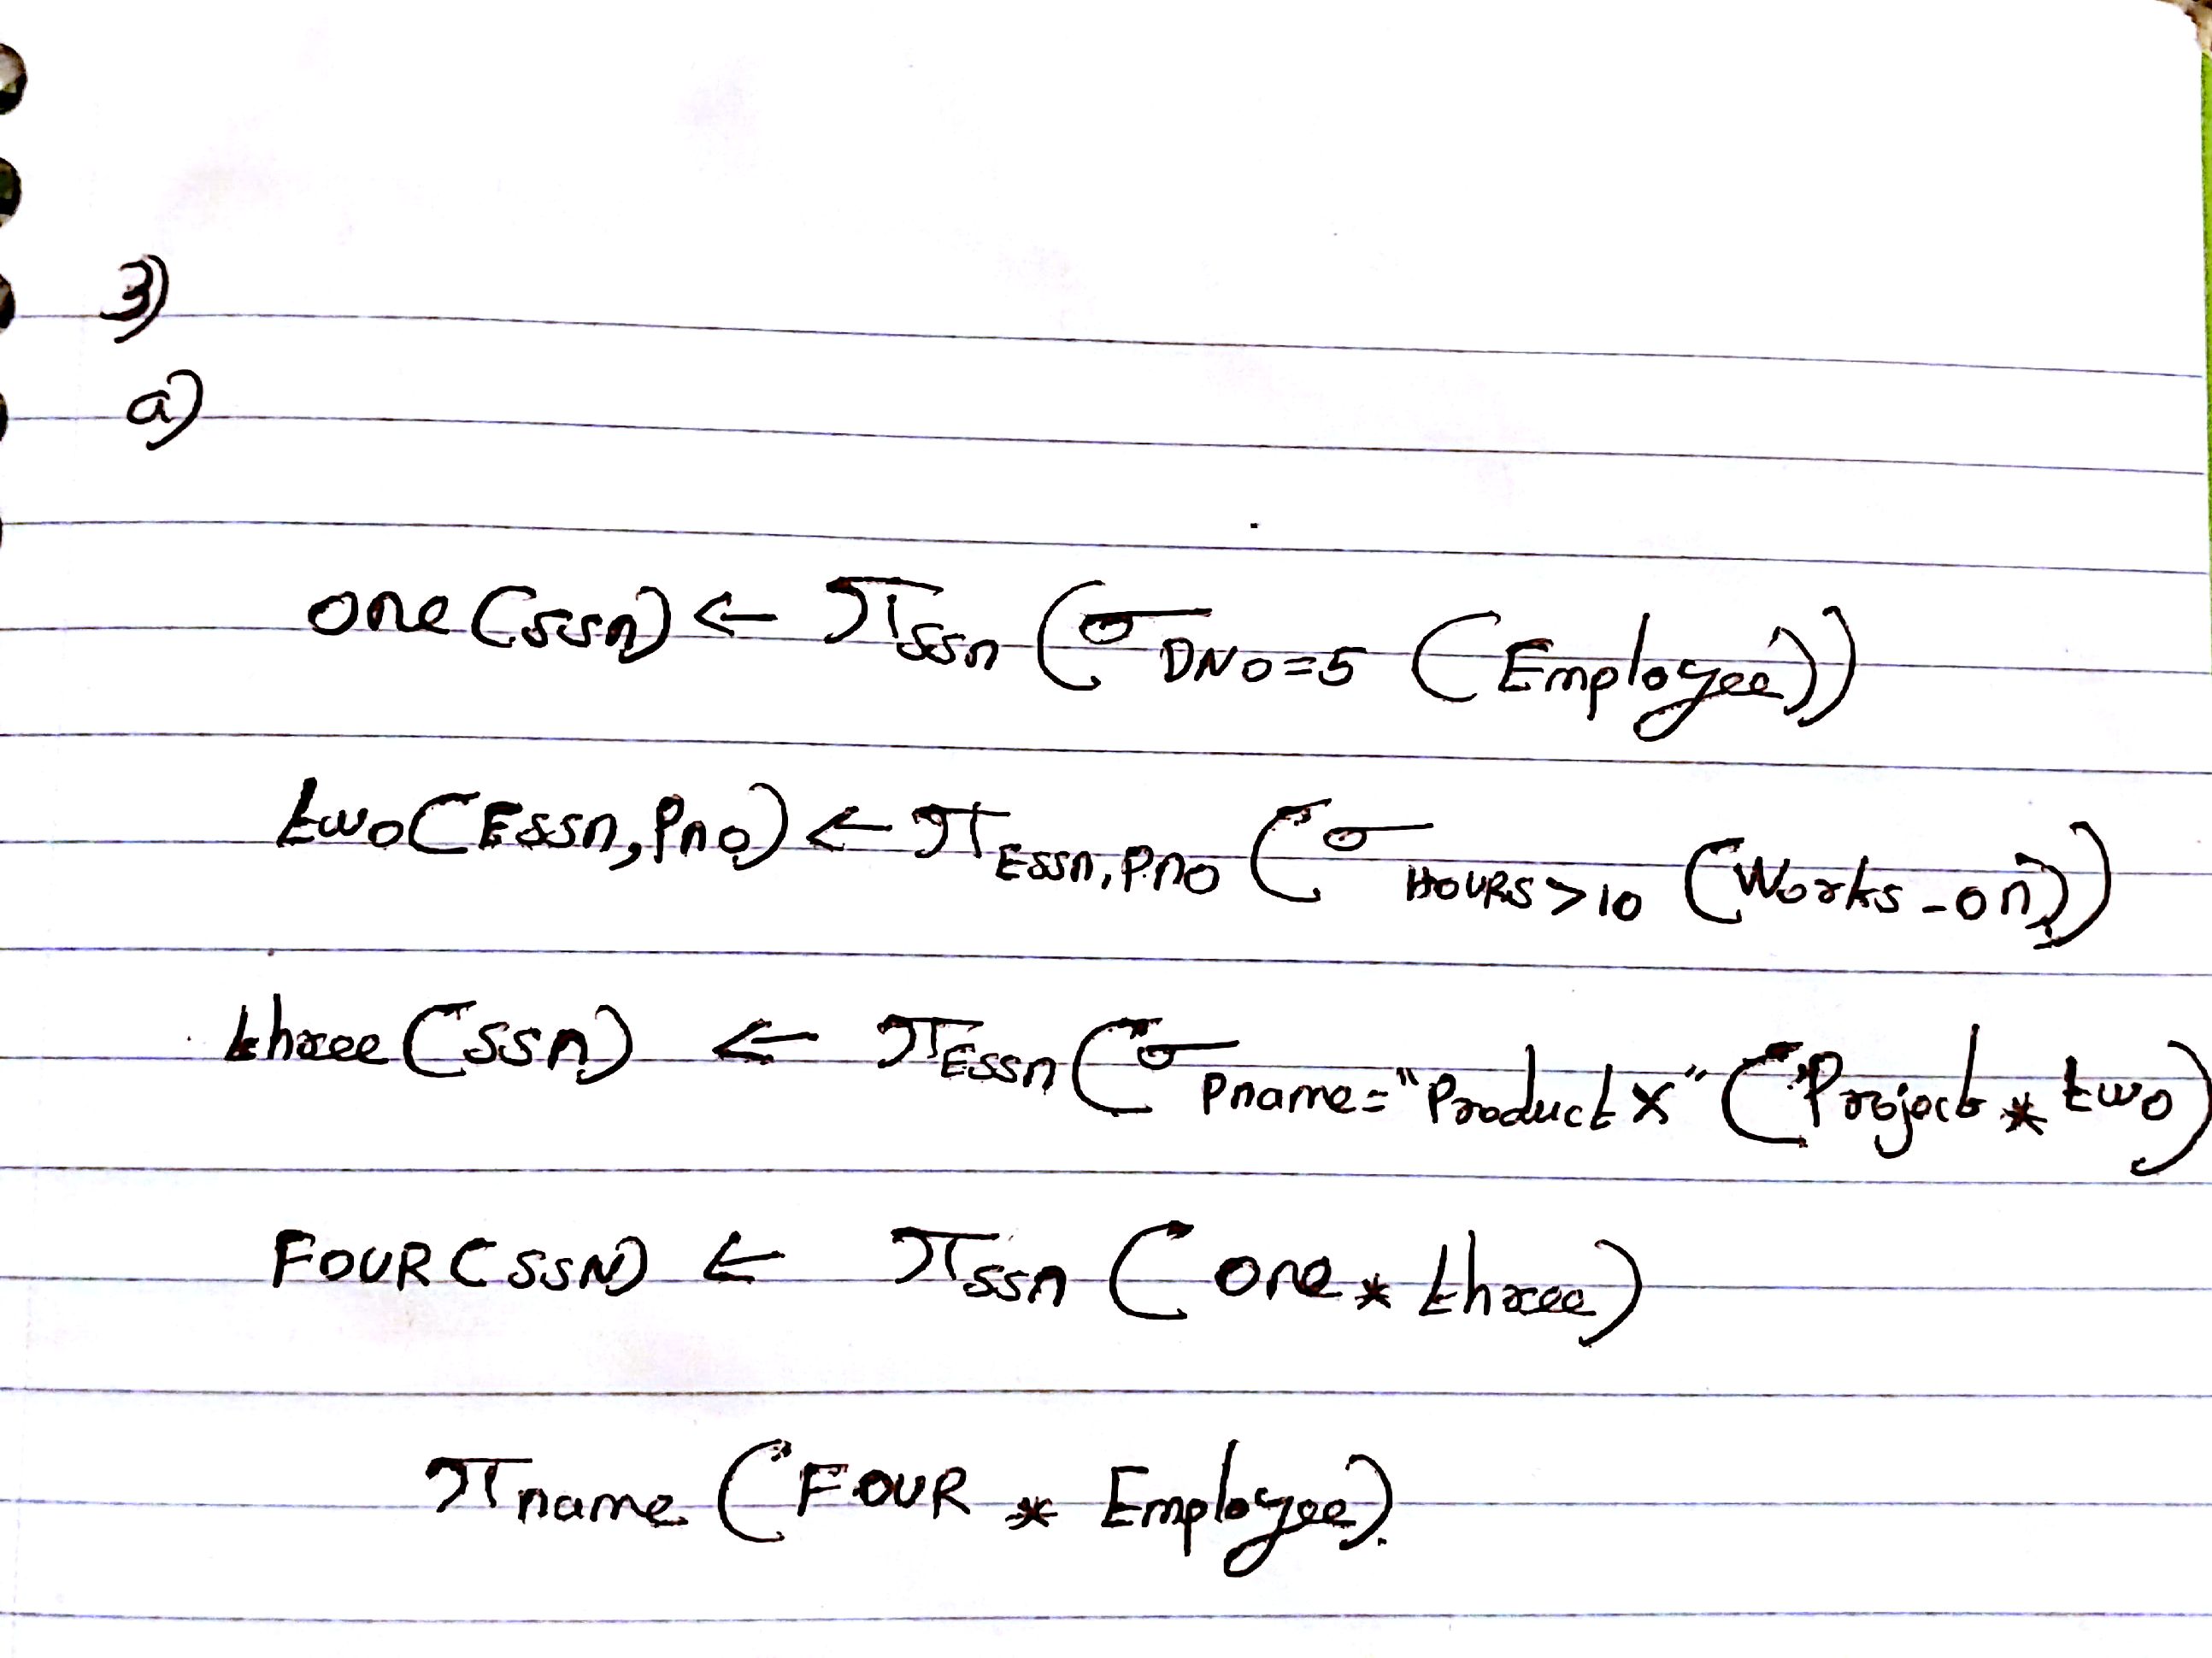 3)
a)
one(ssn) ← π ssn (σ DNO=5 (Employee))
two(Essn, Pno) ← π Essn, Pno (σ HOURS>10 (Works-on))
three(ssn) ← π Essn (σ Pname="Product X" (Project * two)
FOUR(SSN) ← π ssn (one * three)
π name (FOUR * Employee).